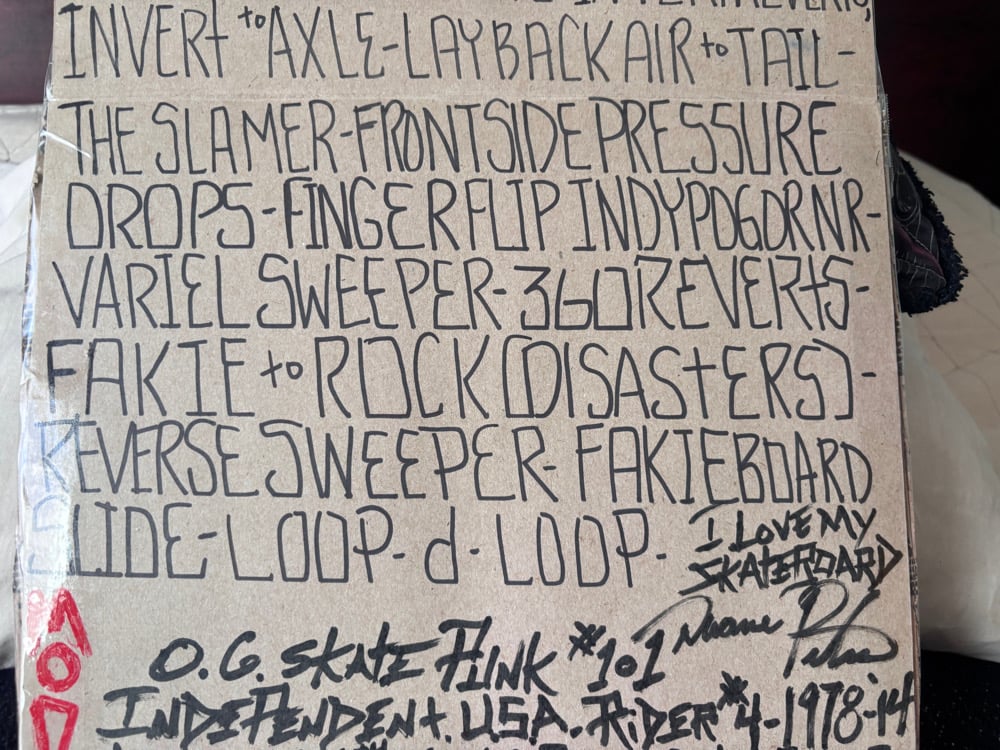 INVERT to AXLE-LAYBACK AIR to TAIL-
THE SLAMER-FRONTSIDE PRESSURE
DROPS-FINGERFLIP INDYPOGORNR-
VARIEL SWEEPER-360 REVERTS-
FAKIE to ROCK (DISASTERS)-
REVERSE SWEEPER-FAKIE BOARD
SLIDE-LOOP-d-LOOP-
I LOVE MY
SKATEBOARD
Duane Peters
O.G. SKATE PUNK #101
INDEPENDENT. U.S.A. RIDER #4-1978-14